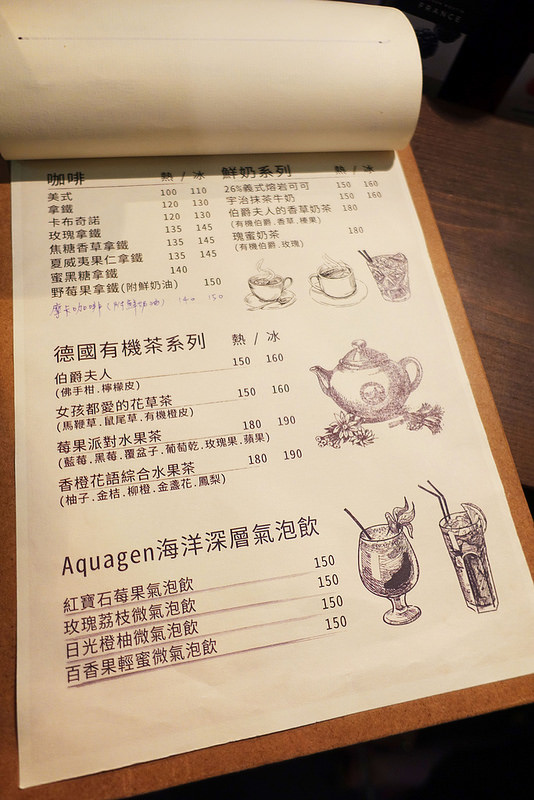 FRANCE
咖啡 熱 / 冰
美式 100 110
拿鐵 120 130
卡布奇諾 120 130
玫瑰拿鐵 135 145
焦糖香草拿鐵 135 145
夏威夷果仁拿鐵 135 145
蜜黑糖拿鐵 140
野莓果拿鐵(附鮮奶油) 150
摩卡咖啡(附鮮奶油) 140 150
鮮奶系列 熱 / 冰
26%義式熔岩可可 150 160
宇治抹茶牛奶 150 160
伯爵夫人的香草奶茶 180
(有機伯爵.香草.榛果)
瑰蜜奶茶 180
(有機伯爵.玫瑰)
德國有機茶系列 熱 / 冰
伯爵夫人 150 160
(佛手柑.檸檬皮)
女孩都愛的花草茶 150 160
(馬鞭草.鼠尾草.有機橙皮)
莓果派對水果茶 180 190
(藍莓.黑莓.覆盆子.葡萄乾.玫瑰果.蘋果)
香橙花語綜合水果茶 180 190
(柚子.金桔.柳橙.金盞花.鳳梨)
Aquagen海洋深層氣泡飲
紅寶石莓果氣泡飲 150
玫瑰荔枝微氣泡飲 150
日光橙柚微氣泡飲 150
百香果輕蜜微氣泡飲 150